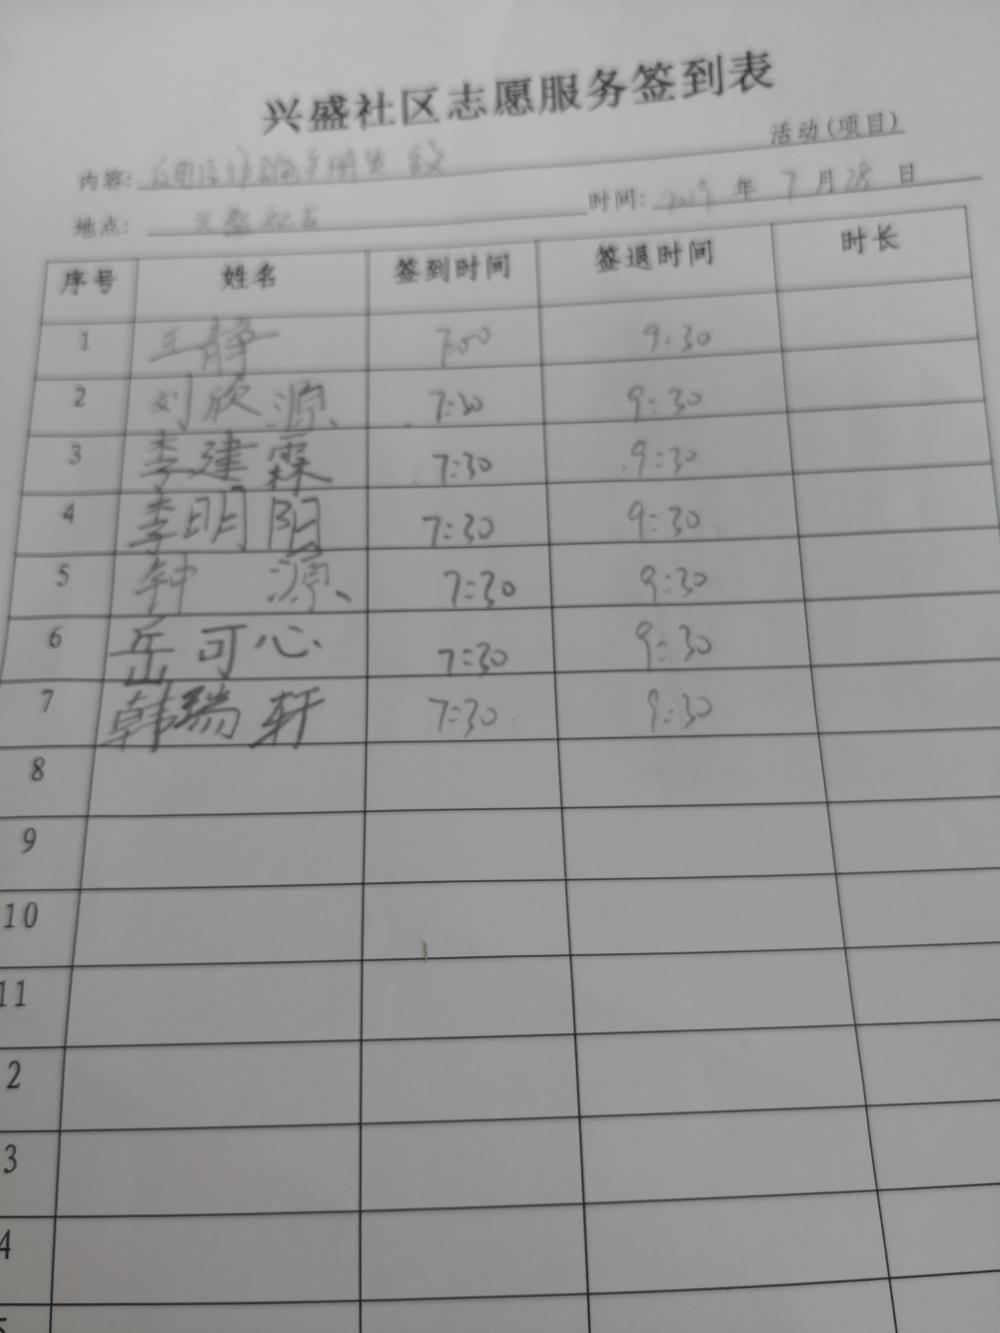 兴盛社区志愿服务签到表
活动(项目)
内容:
地点: 兴盛社区 时间: 2019 年 7 月 28 日
序号 姓名 签到时间 签退时间 时长
1 王静 7:00 9:30
2 刘欣源 7:30 9:30
3 李建霖 7:30 9:30
4 李明阳 7:30 9:30
5 钟源 7:30 9:30
6 岳可心 7:30 9:30
7 韩瑞轩 7:30 9:30
8
9
10
11
2
3
4